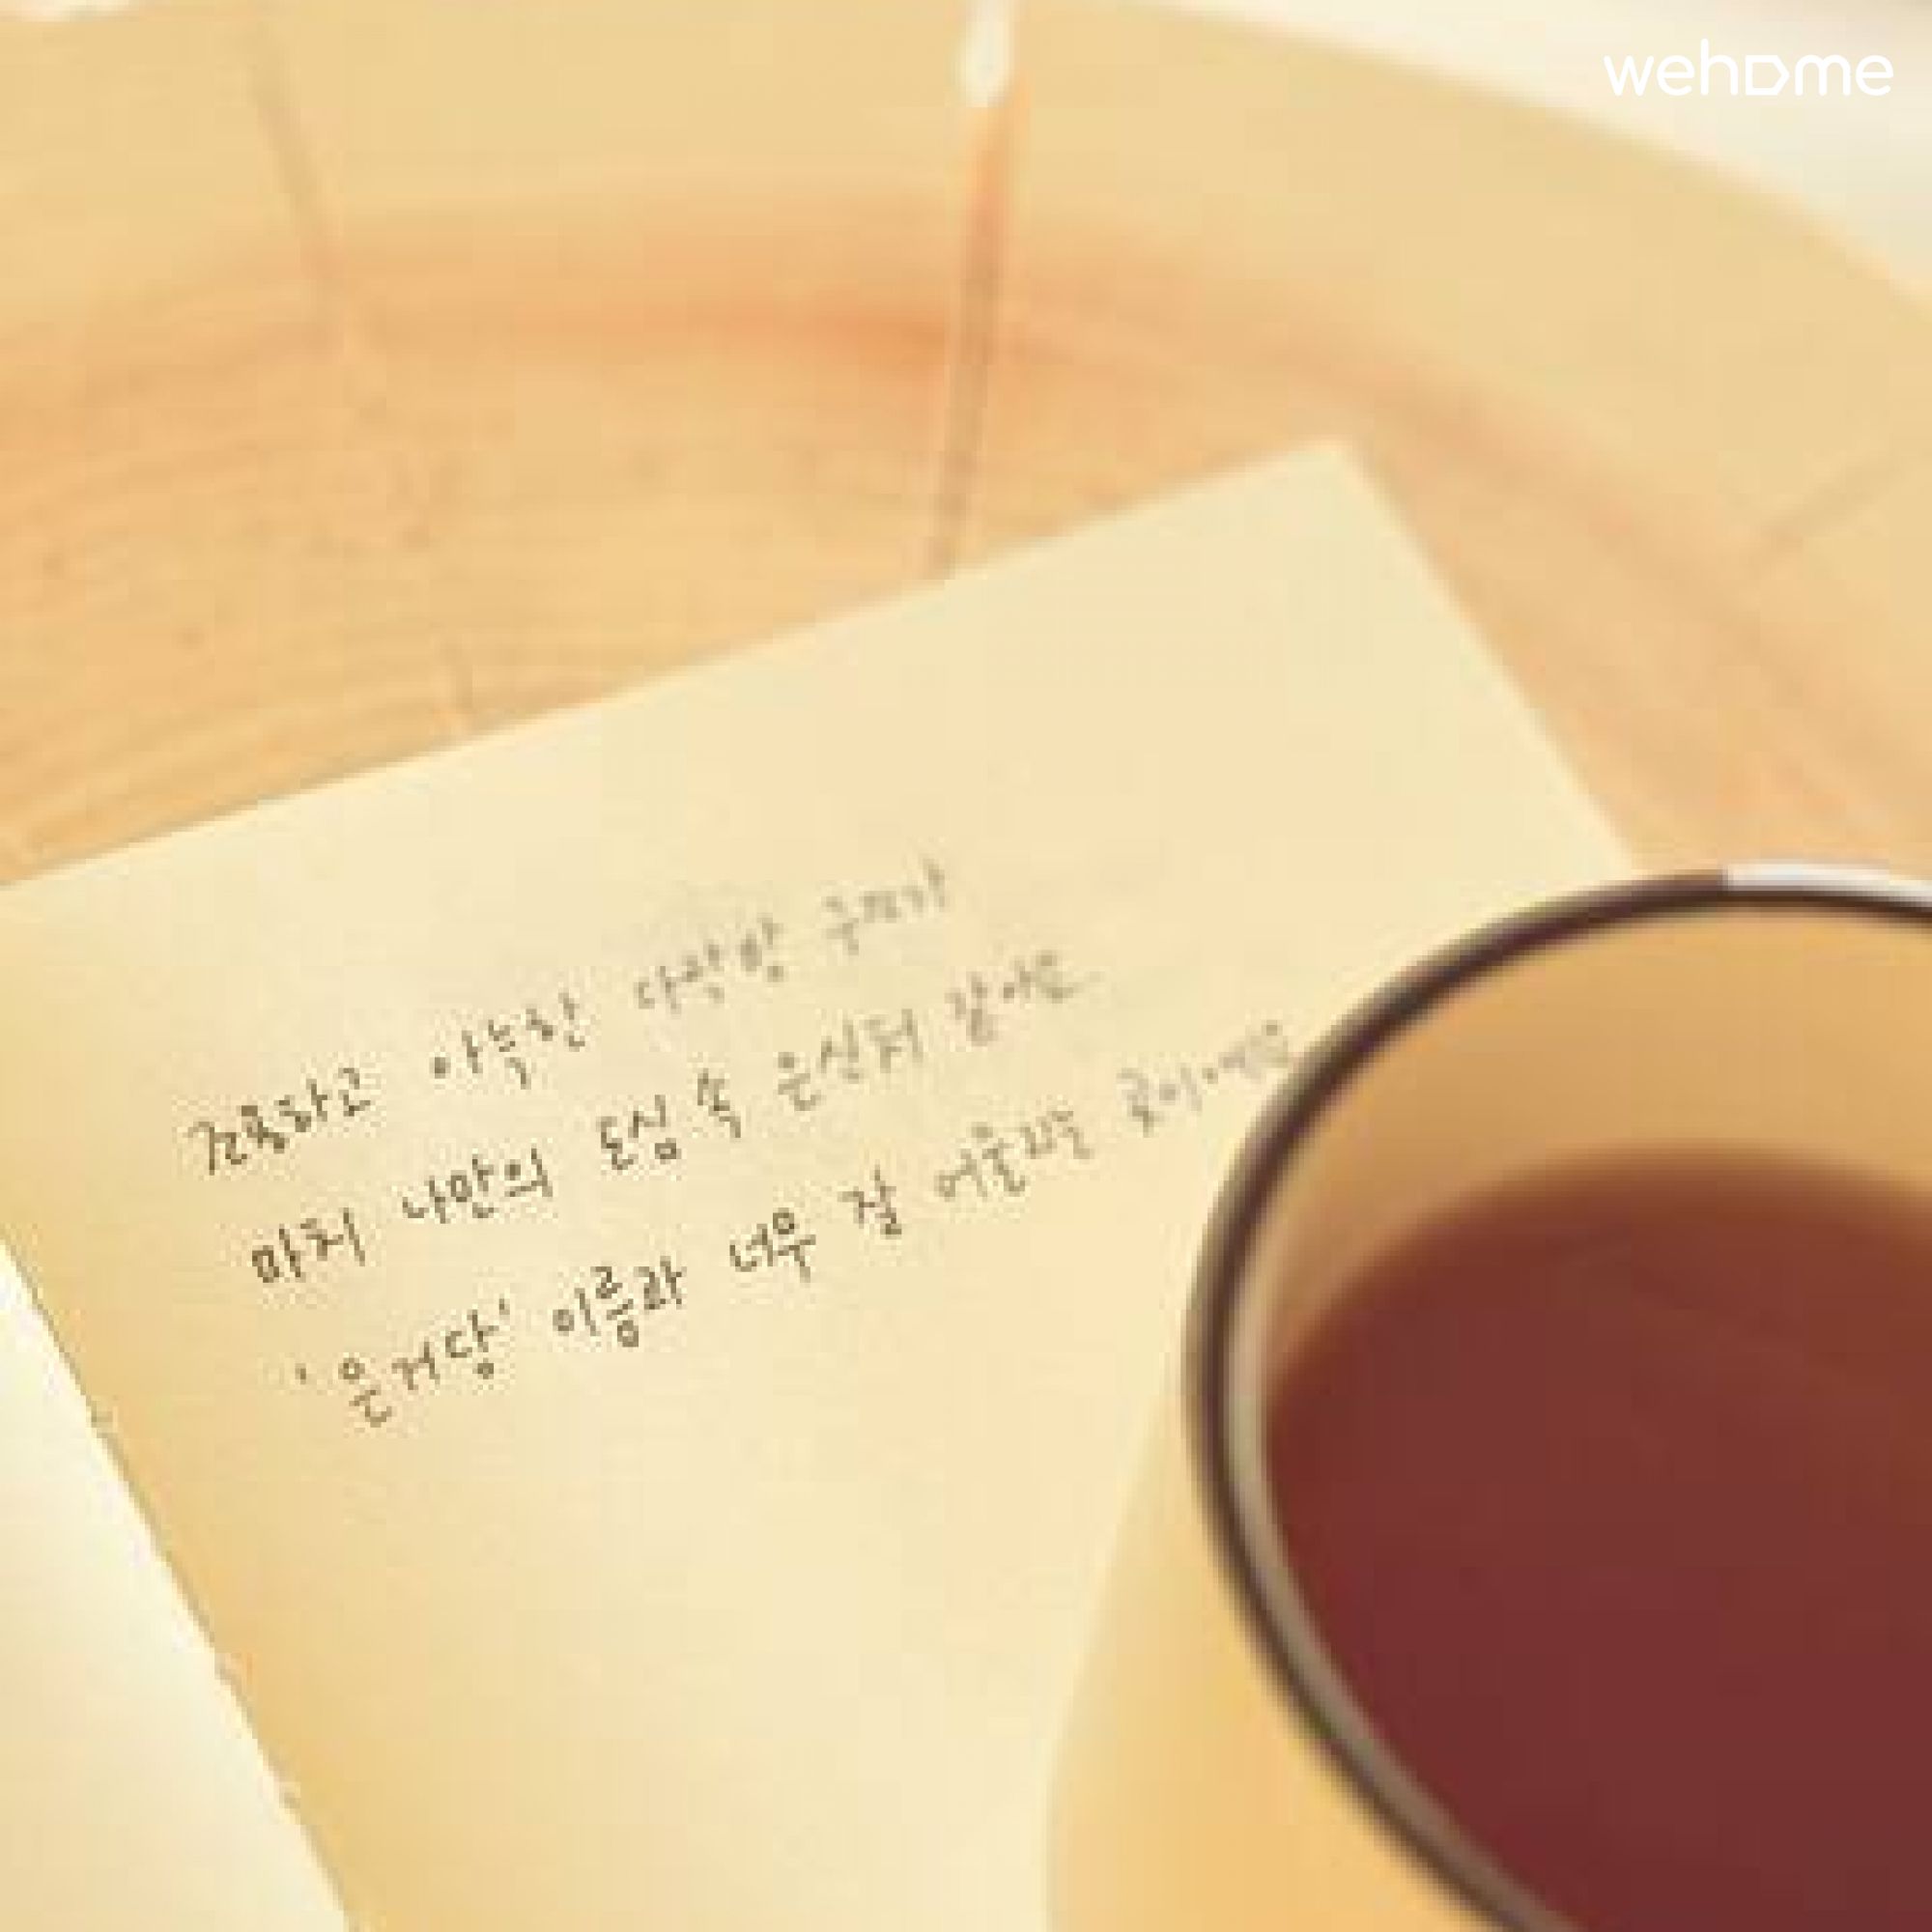 wehome
조용하고 아늑한 다락방 구조가
마치 나만의 도심 속 은신처 같아요
'은거당' 이름과 너무 잘 어울리는 곳이에요